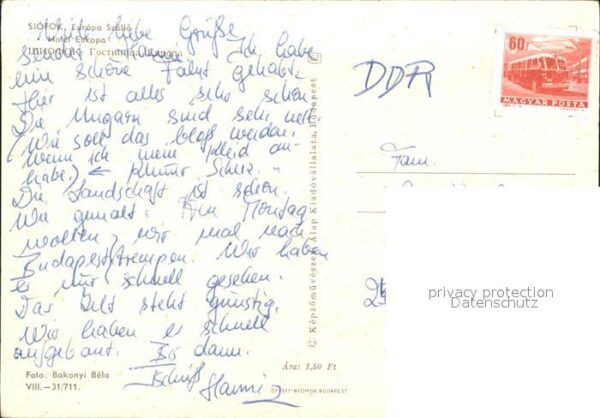 SIÓFOK, Európa Szálló
Hotel Europa
ШИОФОК, Гостиница Европа
liebe Grüße
Ich habe
eine schöne Fahrt gehabt.
Hier ist alles sehr schön.
Die Ungarn sind sehr nett
(Wie soll das bloß werden,
wenn ich mein Kleid an-
habe.) ← kleiner Scherz.
Die Landschaft ist schön.
Wie gemalt. Am Montag
wollen wir mal nach
Budapest trempen. Wir haben
es nur schnell gesehen.
Das Zelt steht günstig.
Wir haben es schnell
aufgebaut. Bis dann.
Tschüß
Foto: Bakonyi Béla
VIII.—31/711.
Ára: 1,50 Ft
OFFSET-NYOMDA BUDAPEST
© Képzőművészeti Alap Kiadóvállalata, Budapest
DDR
60f
MAGYAR POSTA
Fam.
privacy protection
Datenschutz